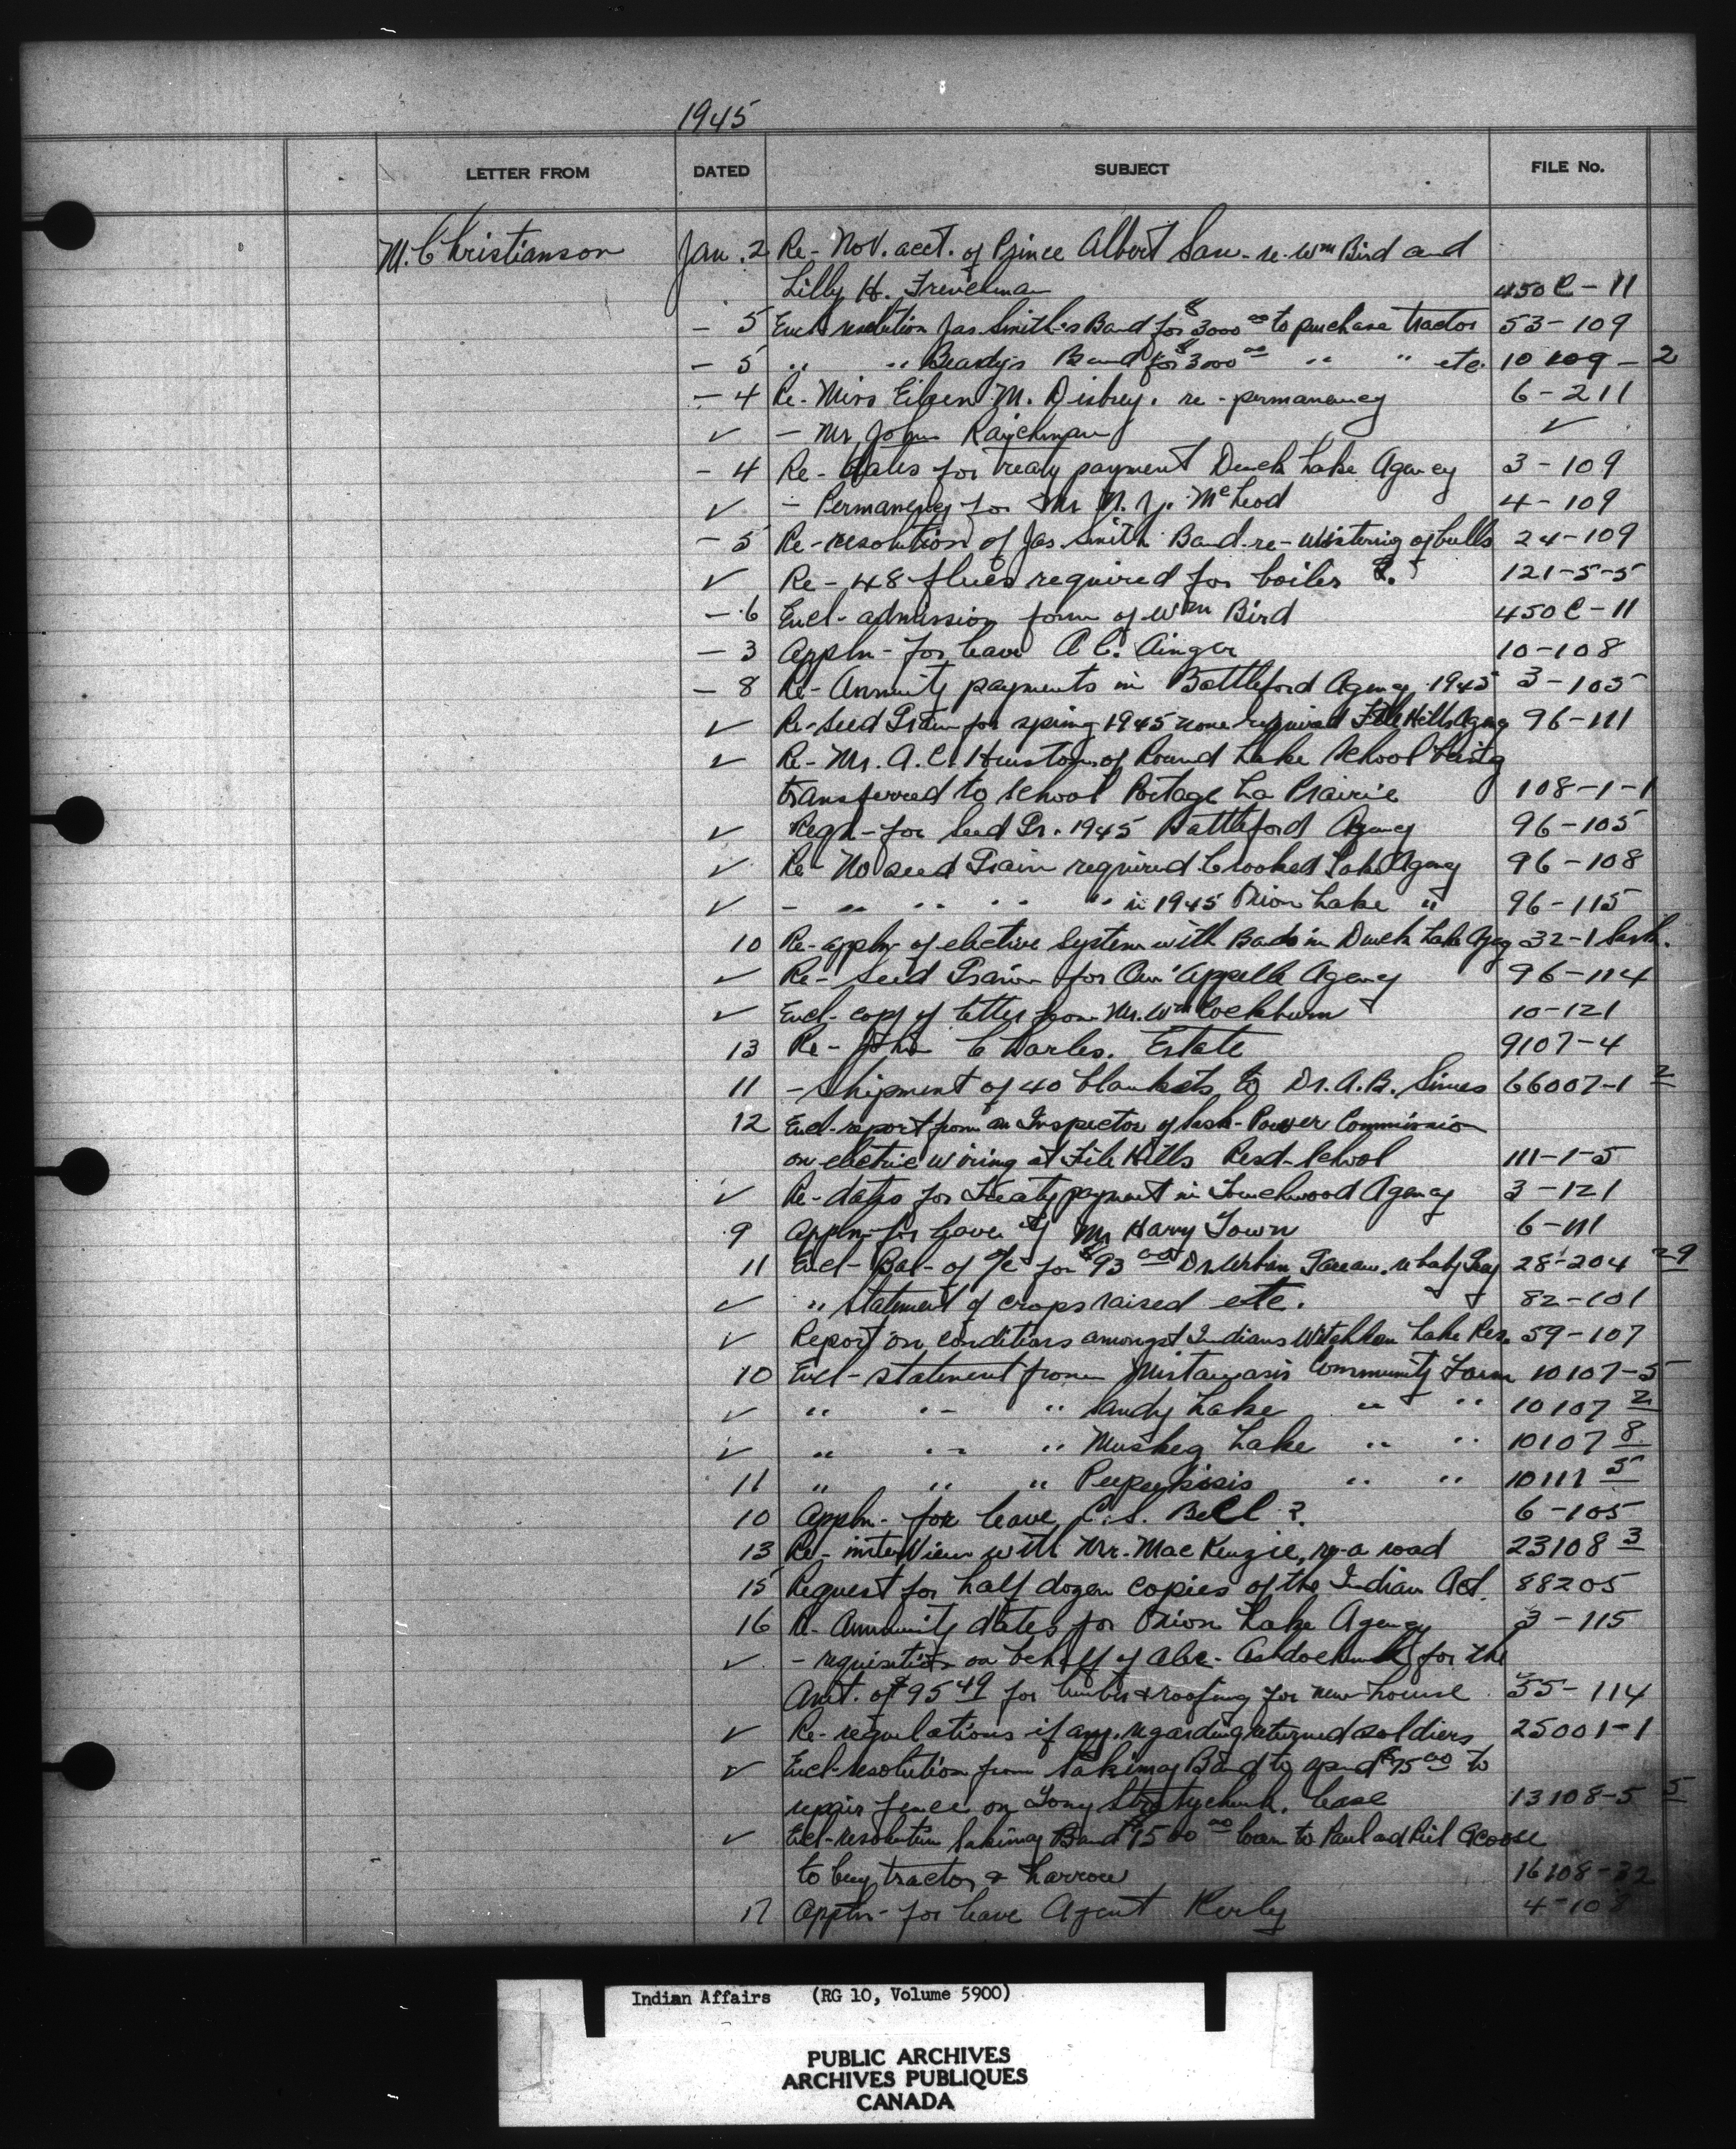 1945
LETTER FROM DATED SUBJECT FILE No.
M. Christianson Jan. 2 Re- Nov. acct. of Prince Albert San. re. Wm Bird and
Lilly H. Frenchman 450C-11
- 5 Encl. resolution Jas. Smith's Band for $3000 00 to purchase tractor 53-109
- 5 " " Beardy's Band for $3000 00 " " etc. 10109-2
- 4 Re- Miss Eileen M. Disbrey. re-permanency 6-211
✓ - Mr John ✓
- 4 Re- Dates for Treaty payment Duck Lake Agency 3-109
✓ - Permanency for Mr N. J. McLeod 4-109
- 5 Re-resolution of Jas Smith Band re-wintering of bulls 24-109
✓ Re- 48 flues required for boiler 121-5-5
- 6 Encl- admission form of Wm Bird 450C-11
- 3 Appln- for leave A C. Ainger 10-108
- 8 Re- Annuity payments in Battleford Agency 1945 3-105
✓ Re-Seed Grain for spring 1945 none required File Hills Agency 96-111
✓ Re- Mr. A. C. Huston of Round Lake School being
transferred to school Portage La Prairie 108-1-1
✓ Reqn- for Seed Gr. 1945 Battleford Agency 96-105
✓ Re- No seed Grain required Crooked Lake Agency 96-108
✓ - " " " " in 1945 Onion Lake " 96-115
10 Re-appln of elective System with Bands in Duck Lake Agcy 32-1 Sask.
✓ Re- Seed Grain for Qu'Appelle Agency 96-114
✓ Encl- copy of letter from Mr. Wm Cockburn 10-121
13 Re- John Charles. Estate 9107-4
11 - Shipment of 40 blankets to Dr. A.B. Simes 66007-1 2
12 Encl-report from an Inspector of Sask-Power Commission
on electric wiring at File Hills Resd-School 111-1-5
✓ Re-dates for Treaty payment in Touchwood Agency 3-121
9 Appln-for leave of Mr Harry Town 6-111
11 Encl- Bal- of a/c for $93 00 Dr. Urban Gareau. re baby 28-204 29
✓ " Statement of crops raised etc. 82-101
✓ Report on conditions amongst Indians Witchkan Lake Res. 59-107
10 Encl- statement from Mistawasis Community Farm 10107-5
✓ " " " Sandy Lake " " 10107 2
✓ " " " Muskeg Lake " " 10107 8
11 " " " Peepeekisis " " 10111 5
10 Appln- for leave C. S. Bell ?. 6-105
13 Re- interview with Mr. MacKenzie, re-a road 23108 3
15 Request for half dozen copies of the Indian Act. 88205
16 Re- Annuity dates for Onion Lake Agency 3-115
✓ - requisition on behalf of Alex- for the
Amt. of $95 49 for lumber & roofing for new house 55-114
✓ Re-regulations if any. regarding returned soldiers 25001-1
✓ Encl-resolution from Sakimay Band to spend $75 00 to
repair fence on Tony lease 13108-5 5
✓ Encl-resolution Sakimay Band $1500 00 loan to Paul and Riel Acoose
to buy tractor & harrow 16108-32
17 Appln- for leave Agent Kerley 4-108
Indian Affairs (RG 10, Volume 5900)
PUBLIC ARCHIVES
ARCHIVES PUBLIQUES
CANADA